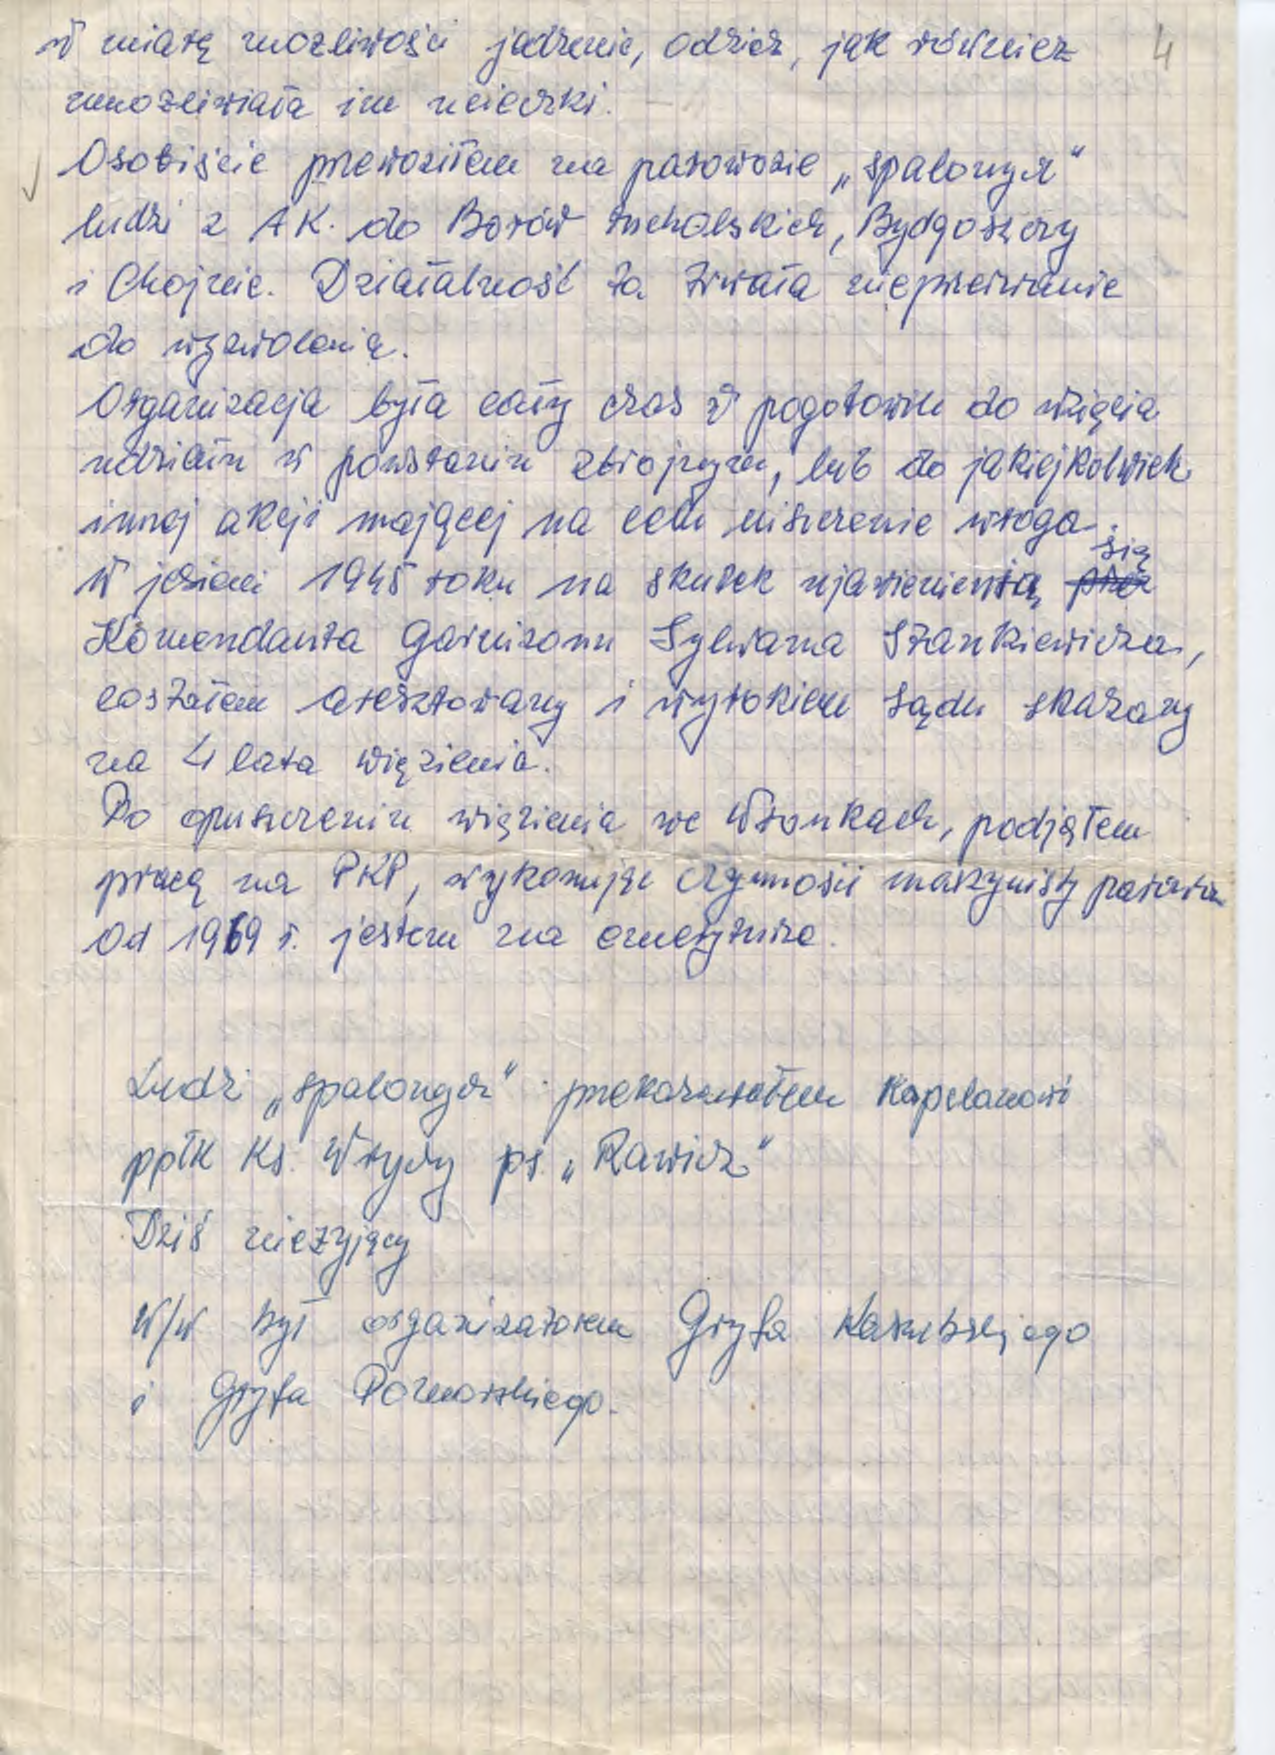 4
w miarę możliwości jedzenie, odzież, jak również
umożliwiała im ucieczki.
Osobiście przewoziłem na parowozie „spalonych"
ludzi z AK. do Borów Tucholskich, Bydgoszczy
i Chojnic. Działalność ta trwała nieprzerwanie
do wyzwolenia.
Organizacja była cały czas w pogotowiu do wzięcia
udziału w powstaniu zbrojnym, lub do jakiejkolwiek
innej akcji mającej na celu niszczenie wroga.
W jesieni 1945 roku na skutek ujawnienia się
Komendanta Garnizonu Sylwana Stankiewicza,
zostałem aresztowany i wyrokiem sądu skazany
na 4 lata więzienia.
Po opuszczeniu więzienia we Wronkach, podjąłem
pracę na PKP, wykonując czynności maszynisty
Od 1969 r. jestem na emeryturze.
Ludzi „spalonych" przekazywałem Kapelanowi
ppłk Ks. Wrycy ps. „Rawicz"
Dziś nieżyjący
W/w był organizatorem Gryfa Kaszubskiego
i Gryfa Pomorskiego.